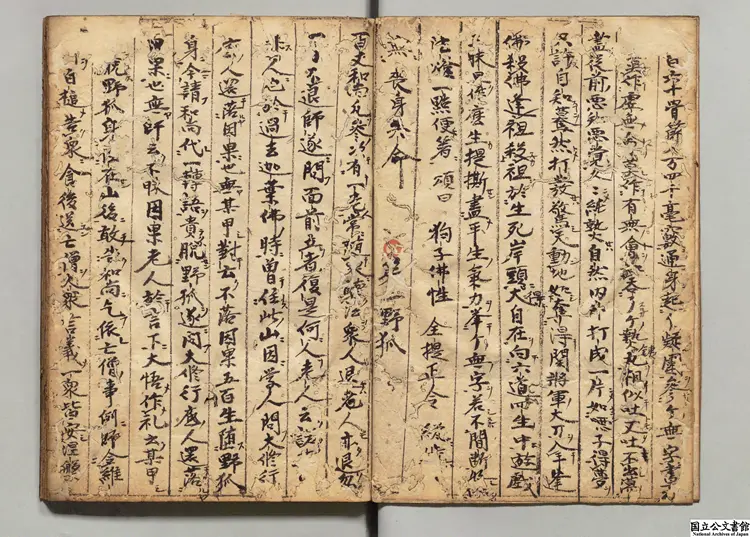 百六十骨節八万四千毫竅通身起个疑團參个無字晝夜
莫作虛無會莫作有無會如吞了个熱鉄丸相似吐又吐不出蕩
盡從前悪知悪覺久々純熟自然内外打成一片如啞子得夢
只許自知驀然打發驚天動地如奪得關將軍大刀入手逢
佛殺佛逢祖殺祖於生死岸頭得大自在向六道四生中遊戲
三昧且作麼生提撕盡平生氣力挙个無字若不間断好
法燈一照便著 頌曰 狗子佛性 全提正令 纔渉
無喪身失命
百丈野狐
百丈和尚凡參次有一老常隨衆聽法衆人退老人亦退忽
一日不退師遂問面前立者復是何人老人云諾
非人也於過去迦葉佛時曽住此山因學人問大修行
底人還落因果也無某甲對云不落因果五百生墮野狐
身今請和尚代一轉語貴脱野狐遂問大修行底人還落
因果也無師云不昧因果老人於言下大悟作礼云某甲
脱野狐身住在山後敢告和尚乞依亡僧事例師令維
白槌告衆食後送亡僧大衆言議一衆皆安涅槃
国立公文書館
National Archives of Japan